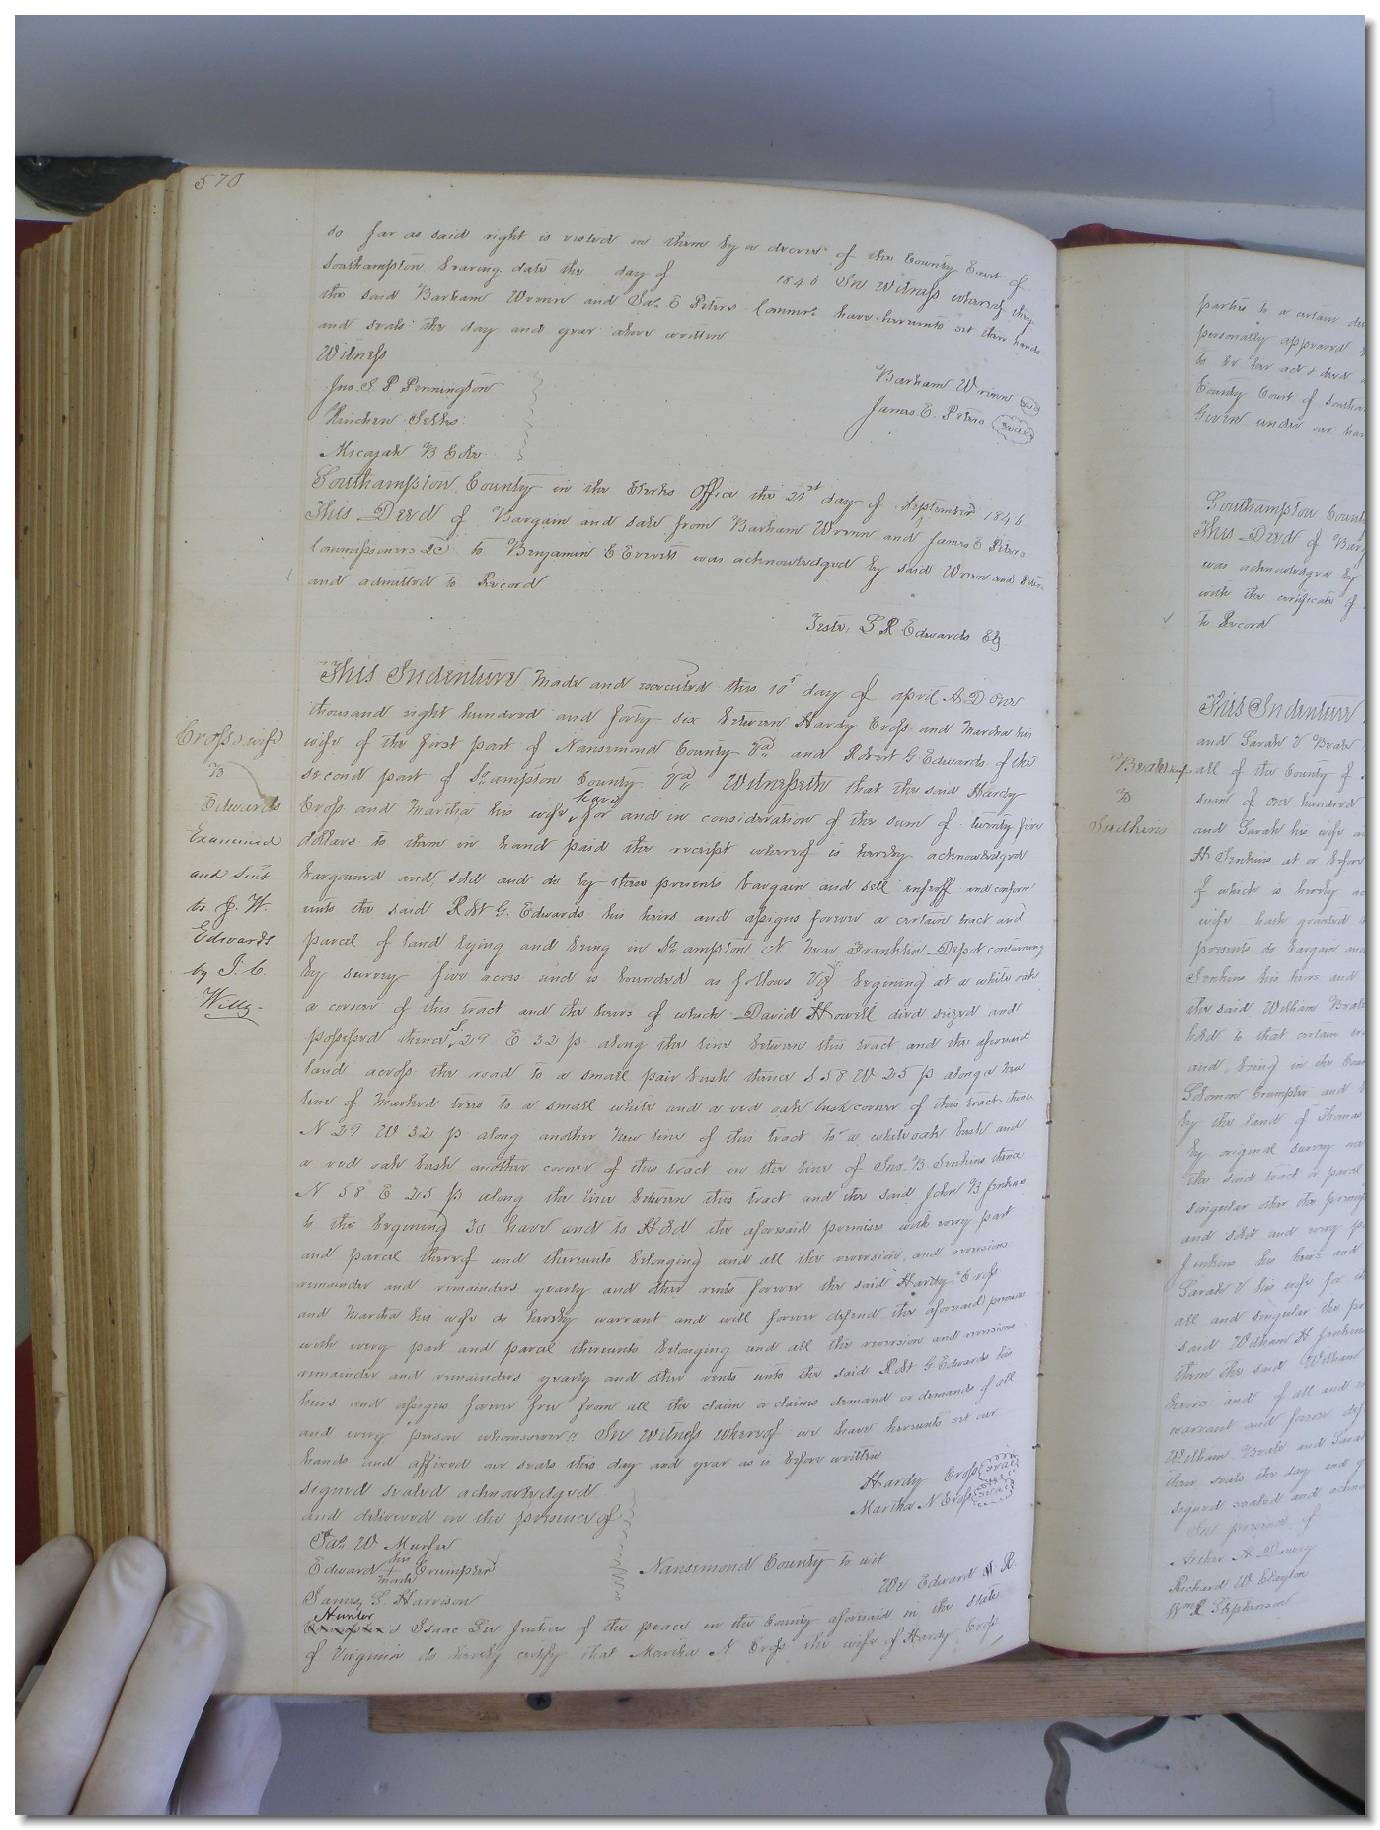 570
so far as said right is vested in them by a decree of the County Court of
Southampton bearing date the day of 1846 In Witness whereof they
the said Barham Wrenn and Jas. E Peters Commrs. have hereunto set their hands
and seals the day and year above written
Witness
Jno. S. P Pennington
Kinchen
Micajah B
Barham Wrenn seal
James E. Peters seal
Southampton County in the Clerks Office the 21st day of September 1846
This Deed of Bargain and sale from Barham Wrenn and James E Peters
Commissioners &c to Benjamin E Everett was acknowledged by said Wrenn and Peters
and admitted to Record
Teste, L R Edwards Clk
Cross & wife
To
Edwards
Examined
and sent
to J. W.
Edwards
by J. C.
Wills
This Indenture Made and executed this 10th day of april A D One
thousand eight hundred and forty six between Hardy Cross and Martha his
wife of the first part of Nansemond County Va and Robert G Edwards of the
second part of So.ampton County Va Witnesseth that the said Hardy
Cross and Martha his wife have for and in consideration of the sum of twenty five
dollars to them in hand paid the receipt whereof is hereby acknowledged
bargained and sold and do by these presents bargain and sell enfeoff and confirm
unto the said Robt G. Edwards his heirs and assigns forever a certain tract and
parcel of land lying and being in So.ampton near Franklin Depot containing
by survey five acres and is bounded as follows Viz begining at a white oak
a corner of this tract and the heirs of which David Howell died seized and
possessed thence S 29 E 32 p along the line between this tract and the aforesaid
land across the road to a small pair bush thence S 58 W 25 p along a new
line of marked trees to a small white and a red oak bush corner of this tract thence
N 29 W 32 p along another new line of this tract to a white oak bush and
a red oak bush another corner of this tract in the line of Jno. B Jenkins thence
N 58 E 25 p along the line between this tract and the said John B Jenkins
to the begining To have and to Hold the aforesaid premises with every part
and parcel thereof and thereunto belonging and all the reversion and reversions
remainder and remainders yearly and other rents forever the said Hardy Cross
and Martha his wife do hereby warrant and will forever defend the aforesaid premises
with every part and parcel thereunto belonging and all the reversion and reversions
remainder and remainders yearly and other rents unto the said Robt G. Edwards his
heirs and assigns forever free from all the claim or claims demand or demands of all
and every person whomsoever In Witness whereof we have hereunto set our
hands and affixed our seals this day and year as is before written
signed sealed acknowledged
and delivered in the presence of
Hardy Cross seal
Martha N Cross seal
Jas. W Murfee
Edward his mark Crumpler
James S. Harrison
Nansemond County to wit
We Edward R.
Hunter & Isaac Lee Justices of the peace in the County aforesaid in the State
of Virginia do hereby certify that Martha N Cross the wife of Hardy Cross
parties to a certain
personally appeared
to be her act & deed
County Court of
Given under our
Southampton County
This Deed of
was acknowledged by
with the certificate of
to Record
Beale & wife
To
Judkins
This Indenture
and Sarah V Beale
all of the County of
sum of one hundred
and Sarah his wife
H Jenkins at or before
of which is hereby
wife hath granted
presents do bargain and
Jenkins his heirs and
the said William Beale
held to that certain
and being in the
Solomon Crumpler and
by the land of Thomas
by original survey
the said tract or parcel
singular other the
and sold and every
Jenkins his heirs and
Sarah V his wife for
all and singular the
said William H Jenkins
them the said William
heirs and of all and
warrant and forever
William Beale and
their seals the day and
signed sealed and
In presence of
Archer A Drewry
Richard W Clayton
Wm. R Stephenson